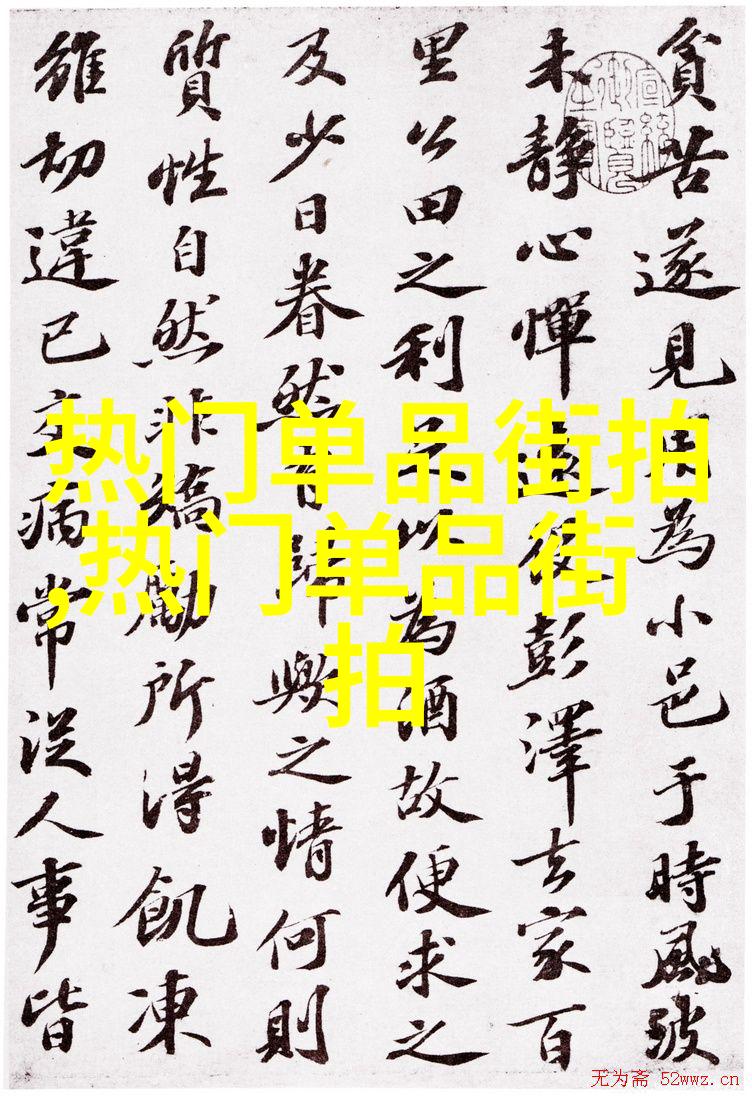 貧苦遂見用為小邑于時風波
未靜心憚遠役彭澤去家百
里公田之利足以為酒故便求之
及少日眷然有歸歟之情何則
質性自然非矯勵所得飢凍
雖切違己交病常從人事皆
热门单品街拍
,热门单品街
拍
无为斋 52wwz.cn